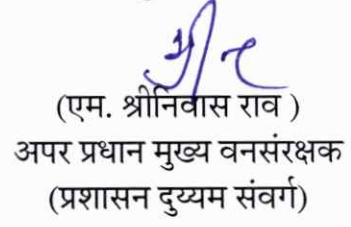 (एम. श्रीनिवास राव )
अपर प्रधान मुख्य वनसंरक्षक
(प्रशासन दुय्यम संवर्ग)